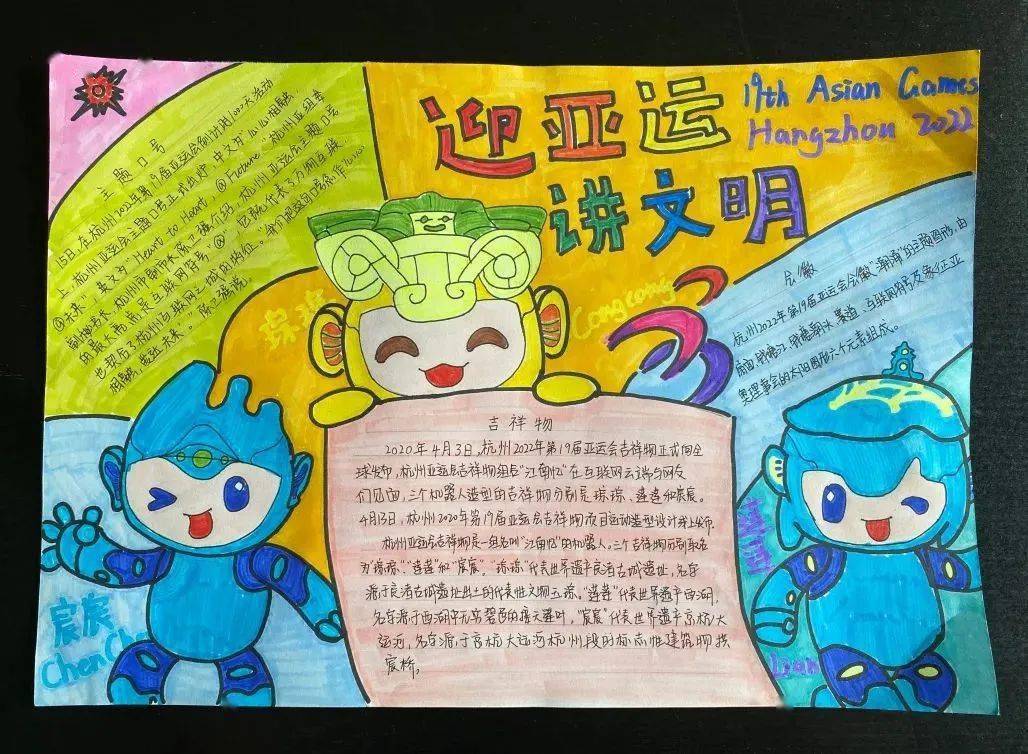 迎亚运
讲文明
19th Asian Games
Hangzhou 2022
主题口号
15日,在杭州2022年第19届亚运会倒计时1000天活动
上,杭州亚运会主题口号正式出炉,中文为"心心相融,
@未来",英文为"Heart to Heart,@Future"杭州亚组委
副秘书长、杭州市副市长陈卫强介绍,杭州亚运会主题口号
的最大亮点是互联网符号"@","@"既代表了万物互联,
也契合了杭州互联网之城的地位。
相融,
陈卫强说。
琮琮
Congcong
会徽
杭州2022年第19届亚运会会徽"潮涌"的主题图形,由
扇面、钱塘江、钱塘潮头、赛道、互联网符号及象征亚
奥理事会的太阳图形六个元素组成。
吉祥物
2020年4月3日,杭州2022年第19届亚运会吉祥物正式向全
球发布,杭州亚运会吉祥物组合"江南忆"在互联网云端与网友
们见面,三个机器人造型的吉祥物分别是琮琮、莲莲和宸宸。
4月13日,杭州2020年第19届亚运会吉祥物项目运动造型设计稿上发布.
杭州亚运会吉祥物是一组名叫"江南忆"的机器人。三个吉祥物分别取名
为"琮琮"、"莲莲"和"宸宸"。"琮琮"代表世界遗产良渚古城遗址,名字
源于良渚古城遗址出土的代表性文物玉琮。"莲莲"代表世界遗产西湖,
名字源于西湖中无穷碧色的接天莲叶,"宸宸"代表世界遗产京杭大
运河,名字源于京杭大运河杭州段的标志性建筑物拱
宸桥。
宸宸
Chen Ch
莲莲
Lian